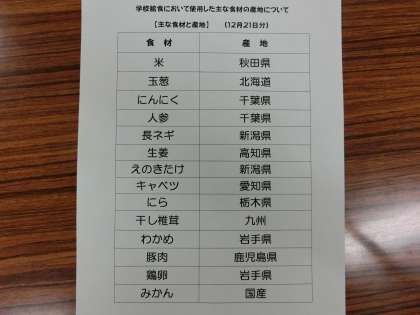 学校給食において使用した主な食材の産地について
【主な食材と産地】 (12月21日分)
食材 産地
米 秋田県
玉葱 北海道
にんにく 千葉県
人参 千葉県
長ネギ 新潟県
生姜 高知県
えのきたけ 新潟県
キャベツ 愛知県
にら 栃木県
干し椎茸 九州
わかめ 岩手県
豚肉 鹿児島県
鶏卵 岩手県
みかん 国産